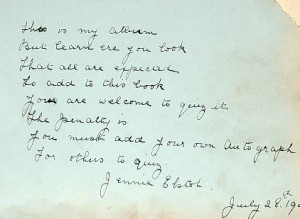 This is my album
But learn ere you look
That all are expected
To add to this book
You are welcome to quiz it
The penalty is
You must add your own Autograph
For others to quiz.
Jennie
July 28th 19